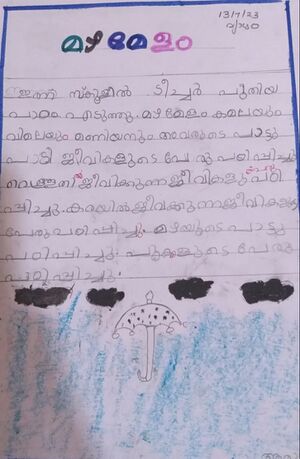 13/7/23
വ്യാഴം
മഴ മേളം
ഇന്ന് സ്കൂളിൽ ടീച്ചർ പുതിയ
പാഠം എടുത്തു. മഴ മേളം കമലയും
വിമലയും മണിയനും അവരുടെ പാട്ടു
പാടി ജീവികളുടെ പേരു പഠിപ്പിച്ചു
വെള്ളത്തിൽ ജീവിക്കുന്ന ജീവികളു പേരു പഠി
പ്പിച്ചു. കരയിൽ ജീവക്കുന്ന ജീവികളുടെ
പേരു പഠിപ്പിച്ചു. മഴയുടെ പാട്ടു
പഠിപ്പിച്ചു. പൂക്കളുടെ പേരു
പഠിപ്പിച്ചു.